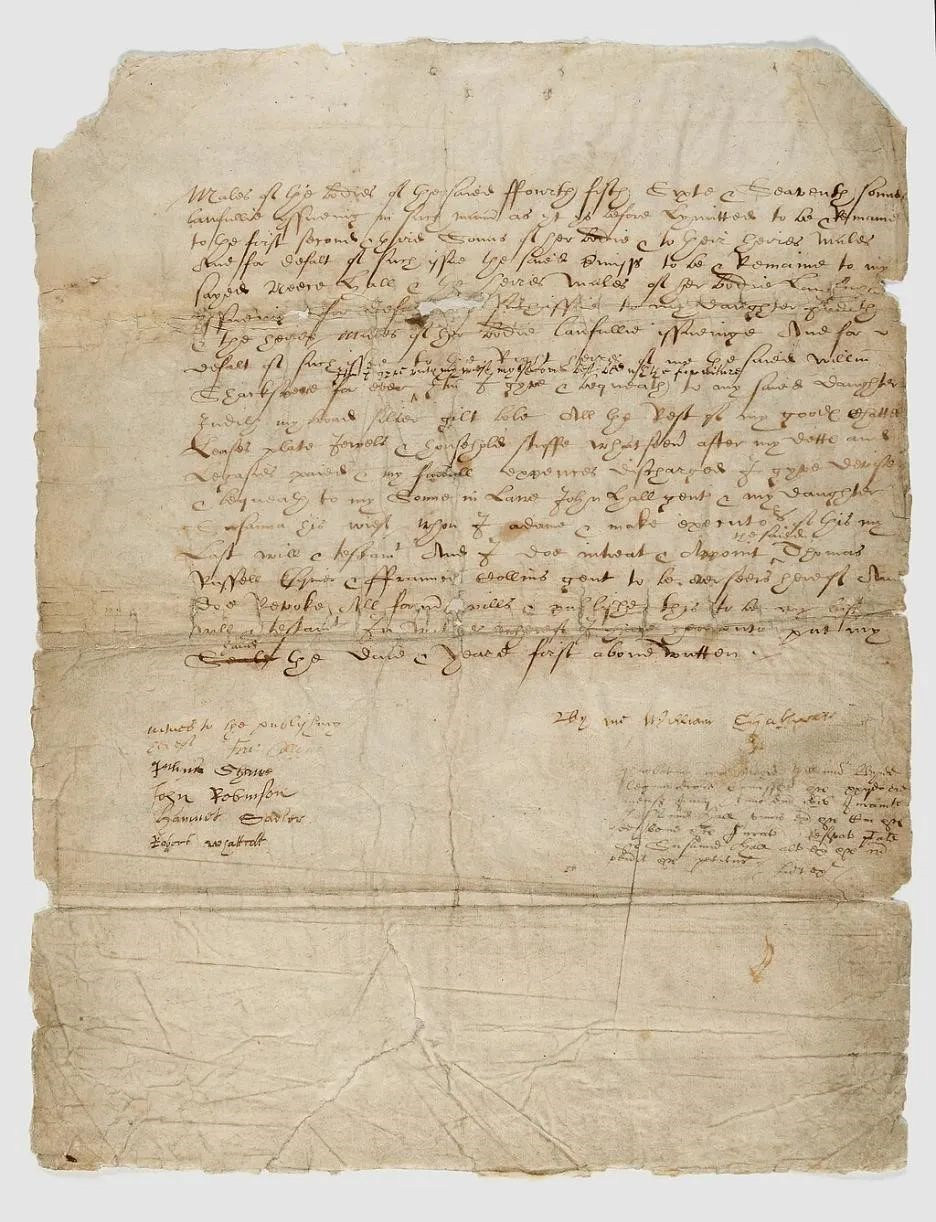 Males of the bodies of the saied ffourth fifth Sixte & Seaventh sonnes
lawfullie yssueing in such mann as yt ys before Lymitted to be & Remaine
to the first second & third Sonns of her bodie & to their heires Males
And for defalt of such issue the saied premiss to be & Remaine to my
sayed Neece Hall & the heires Males of her bodie Lawfully
yssueing for defalt of such issue to my daughter Judith
& the heires Males of her bodie lawfullie yssueinge And for
defalt of such issue to the Right heires of me the saied Willm
Itm I gyve unto my wief my second best bed with the furniture
Shackspere for ever Itm I gyve & bequeath to my saied daughter
Judith my broad silver gilt bole All the Rest of my goods Chattels
Leases plate Jewels & houshold stuffe whatsoever after my detts and
Legasies paied & my funerall expences discharged I gyve devise
& bequeath to my Sonne in Lawe John Hall gent & my daughter
Susanna his wief whom I ordaine & make executors of this my
the saied
Last will & testamt And I doe intreat & Appoint Thomas
Russell Esquier & ffrauncis Collins gent to be overseers hereof And
doe Revoke All formr wills & publishe this to be my last
will & testamt In witnes whereof I have hereunto put my
hand
Seale the daie & Yeare first above written
By me William Shakspeare
witnes to the publishing
hereof Fra: Collyns
Julius Shawe
John Robinson
Hamnet Sadler
Robert Whattcott